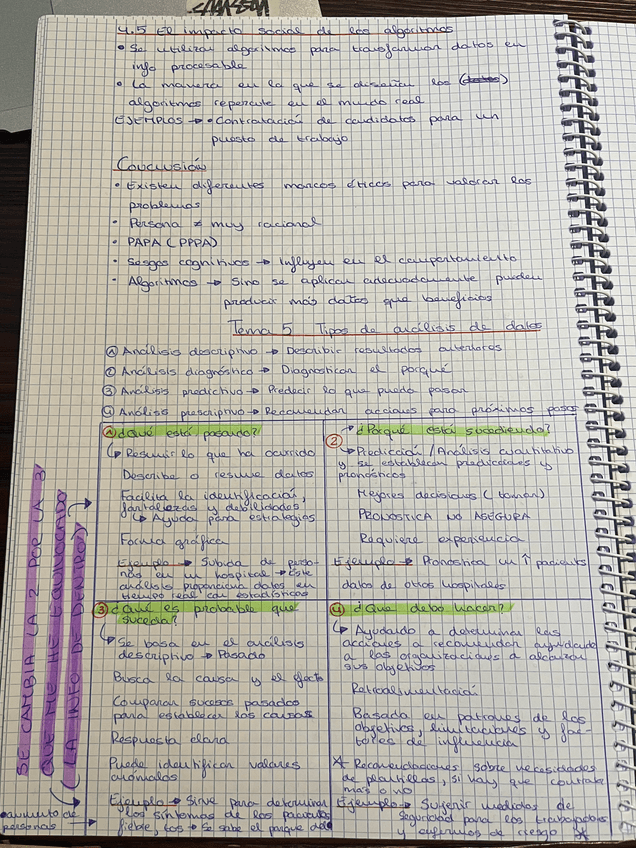 4.5 El impacto social de los algoritmos
• Se utilizan algoritmos para transformar datos en
info procesable
• La manera en la que se diseñan los
algoritmos repercute en el mundo real
EJEMPLOS → • Contratación de candidatos para un
puesto de trabajo
Conclusión
• Existen diferentes marcos éticos para valorar los
problemas
• Persona ≠ muy racional
• PAPA (PPPA)
• Sesgos cognitivos → Influyen en el comportamiento
• Algoritmos → Sino se aplican adecuadamente pueden
producir más datos que beneficios
Tema 5 Tipos de análisis de datos
① Análisis descriptivo → Describir resultados anteriores
② Análisis diagnóstico → Diagnosticar el porqué
③ Análisis predictivo → Predecir lo que puede pasar
④ Análisis prescriptivo → Recomendar acciones para próximos pasos
① ¿Qué está pasando?
↳ Resumir lo que ha ocurrido
Describe o resume datos
Facilita la identificación,
fortalezas y debilidades
↳ Ayuda para estrategias
Forma gráfica
Ejemplo → Subida de perso-
nas en un hospital → Este
análisis proporciona datos en
tiempo real con estadísticas
② ¿Porqué está sucediendo?
↳ Predicción / Análisis cuantitativo
y se establecen predicciones y
pronósticos
Mejores decisiones (toman)
PRONOSTICA NO ASEGURA
Requiere experiencia
Ejemplo → Pronostica un ↑ pacients
datos de otros hospitales
③ ¿Qué es probable que
suceda?
↳ Se basa en el análisis
descriptivo → Pasado
Busca la causa y el efecto
Comparar sucesos pasados
para establecer las causas
Respuesta clara
Puede identificar valores
anómalos
Ejemplo → Sirve para determinar
los síntomas de los pacientes
fiebre, tos → Se sabe el porque del
• aumento de
personas
④ ¿Qué debo hacer?
↳ Ayudado a determinar las
acciones a recomendar ayudando
a las organizaciones a alcanzar
sus objetivos
Retroalimentación
Basada en patrones de los
objetivos, limitaciones y fac-
tores de influencia
* Recomendaciones sobre necesidades
de plantillas, si hay que contratar
más o no
Ejemplo → Sugerir medidas de
Seguridad para los trabajadores
y enfermos de riesgo *
SE CAMBIA LA 2 POR LA 3
QUE ME HE EQUIVOCADO
(LA INFO DE DENTRO)